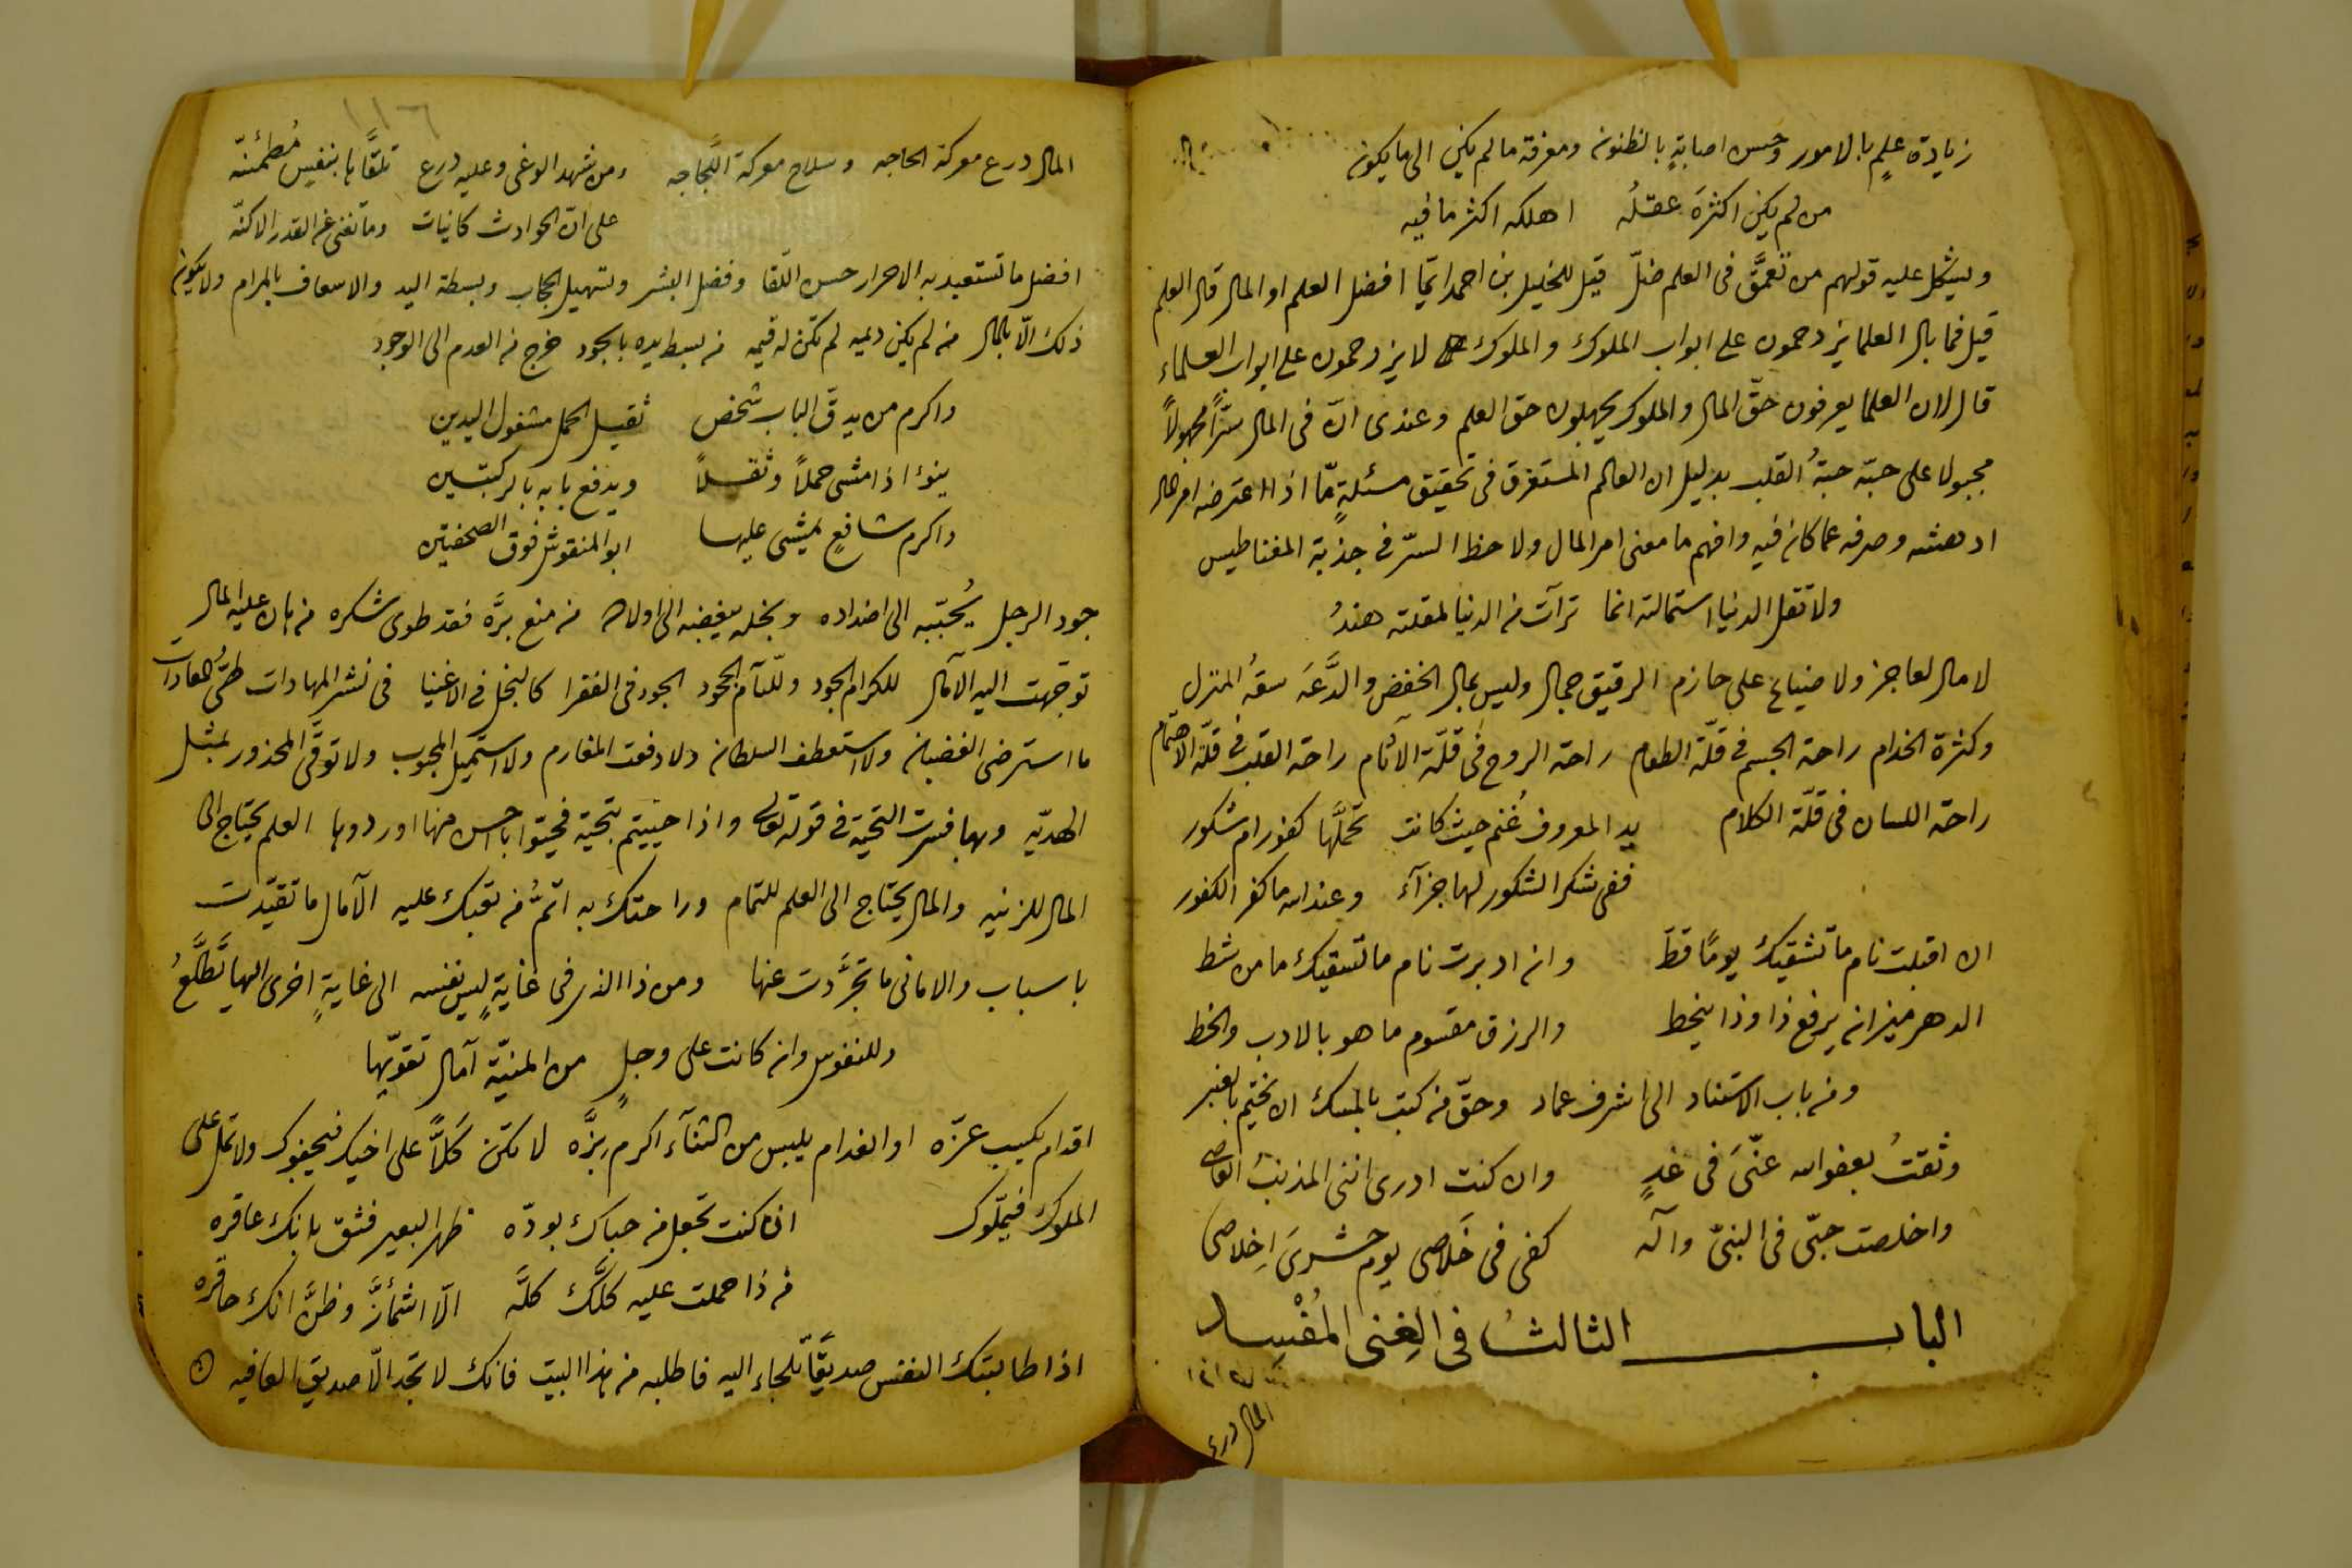 زيادة علمٍ بالامور وحسن اصابةٍ بالظنون ومعرفة ما لم يكن الى ما يكون
من لم يكن اكثرَه عقلُه اهلكه اكثر ما فيه
وليشكل عليه قولهم من تعمَّق فى العلم ضلّ قيل للخليل بن احمد ايّما افضل العلم او المال قال العلم
قيل فما بال العلما يزدحمون على ابواب الملوك والملوك لا يزدحمون على ابواب العلماء
قال لان العلما يعرفون حقّ المال والملوك يجهلون حق العلم وعندى انّ فى المال سرًّا مجهولاً
مجبولا على حبّه حبةُ القلب بدليل ان العالم المستغرق فى تحقيق مسئلةٍ مّا اذا اعترضه امر مال
ادهشه وصرفه عما كان فيه وافهم ما معنى امر المال ولاحظ السرّ فى جذبة المغناطيس
ولا تقل الدنيا استمالته انما ترآت من الدنيا لمقلته هندُ
لا مال لعاجز ولا ضياع على حازم الرقيق جمال وليس بمال الخفض والدَّعَه سعة المنزل
وكثرة الخدام راحة الجسم فى قلّة الطعام راحة الروح فى قلّة الآثام راحة القلب فى قلّة الاهتمام
راحة اللسان فى قلّة الكلام يد المعروف غُنم حيث كانت تحمَّلها كفور ام شكور
ففى شكر الشكور لها جزآء وعند الله ما كفر الكفور
ان اقبلت نام ما تشقيك يومًا قطّ وان ادبرت نام ما تسقيك ما من شط
الدهر ميزانه يرفع ذا وذا ينحط والرزق مقسوم ما هو بالادب والخط
ومن باب الاستناد الى اشرف عماد وحقّ من كتب بالمسك ان يختم بالعنبر
وثقتُ بعفو الله عنّىَ فى غدٍ وان كنت ادرى اننى المذنبُ العاصى
واخلصت حبّى فى النبىّ وآله كفى فى خَلاصى يوم حشرىَ اِخلاصى
الباب الثالثُ فى الغِنى المُفْسِد
المال درع
١١٦
المال درع معركة الحاجه وسلاح معركة اللَّجاجه ومن شهد الوغى وعليه درع تلقَّاها بنفسٍ مُطمئنّه
على انّ الحوادث كانيات وما تغنى عن القدر الاكنّه
افضل ما تستعبد به الاحرار حسن اللّقا وفضل البشر وتسهيل الحجاب وبسطة اليد والاسعاف بالمرام ولا يكون
ذلك الّا بالمال من لم يكن ديمه لم تكن له قيمه من بسط يده بالجود خرج من العدم الى الوجود
واكرم من يدقّ الباب شخص ثقيل الحمل مشغول اليدين
ينؤ اذا مشى حملاً وثقلاً ويدفع بابه بالركبتين
واكرم شافعٍ يمشى عليها ابو المنقوش فوق الصحفتين
جود الرجل يُحبّبه الى اضداده وبخله يبغضه الى اولاده من منع برَّه فقد طوى شكره من هان عليه المال
توجّهت اليه الآمال للكرام الجود وللّئآم الجحود الجود فى الفقرا كالبخل فى الاغنيا فى نشر المهادات طىُّ المعادات
ما استرضى الغضبان ولا استعطف السلطان ولا دفعت المغارم ولا استميل المحبوب ولا توقّى المحذور بمثل
الهديّه وبها فسرت التحيّة فى قوله تعالى واذا حيّيتم بتحيّة فحيّوا باحسن منها او ردوها العلم يحتاج الى
المال للزينه والمال يحتاج الى العلم للتمام وراحتك به اتمُّ من تعبك عليه الآمال ما تقيّدت
باسباب والامانى ما تجرَّدت عنها ومن ذا الذى فى غايةٍ ليس نفسه الى غايةٍ اخرى اليها تَطلَّعُ
وللنفوس وان كانت على وجلٍ من المنيّة آمال تقوّيها
اقدام يكسب عزّه او الغدام يلبس من الثنآء اكرم بِزَّه لا تكن كَلاًّ على اخيك فيجفوك ولا تمل على
الملوك فيملّوك ان كنت تجعل من حباك بودّه ظهر البعير فثق بانك عاقره
من ذا حملت عليه كلَّك كلّه الّا اشمأزَّ وظنَّ انك حاقره
اذا طالبتك النفس صديقًا تلجاء اليه فاطلبه من هذا البيت فانك لا تجد الّا صديق العافيه